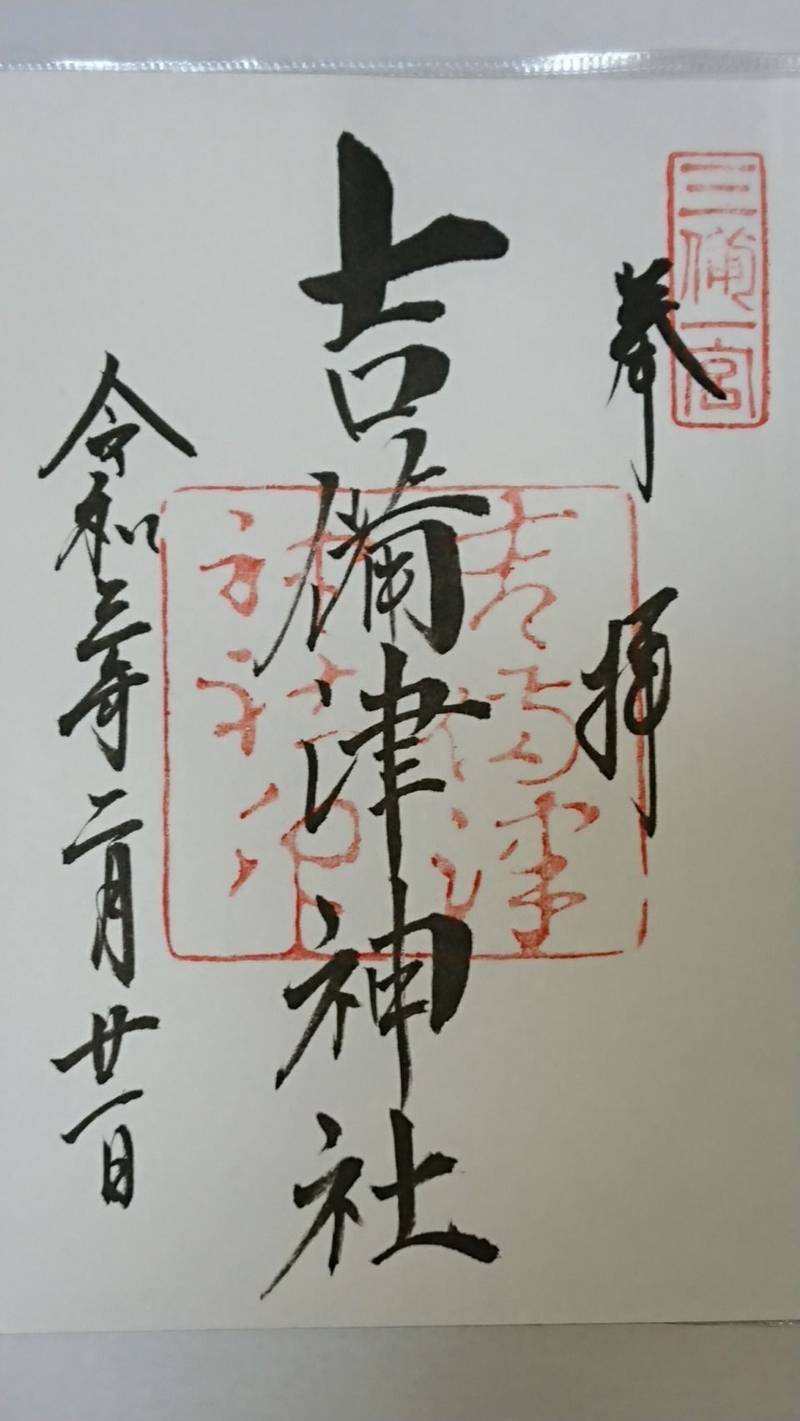 三備一宮
奉拝
吉備津神社
吉備津
神社
令和三年二月廿一日